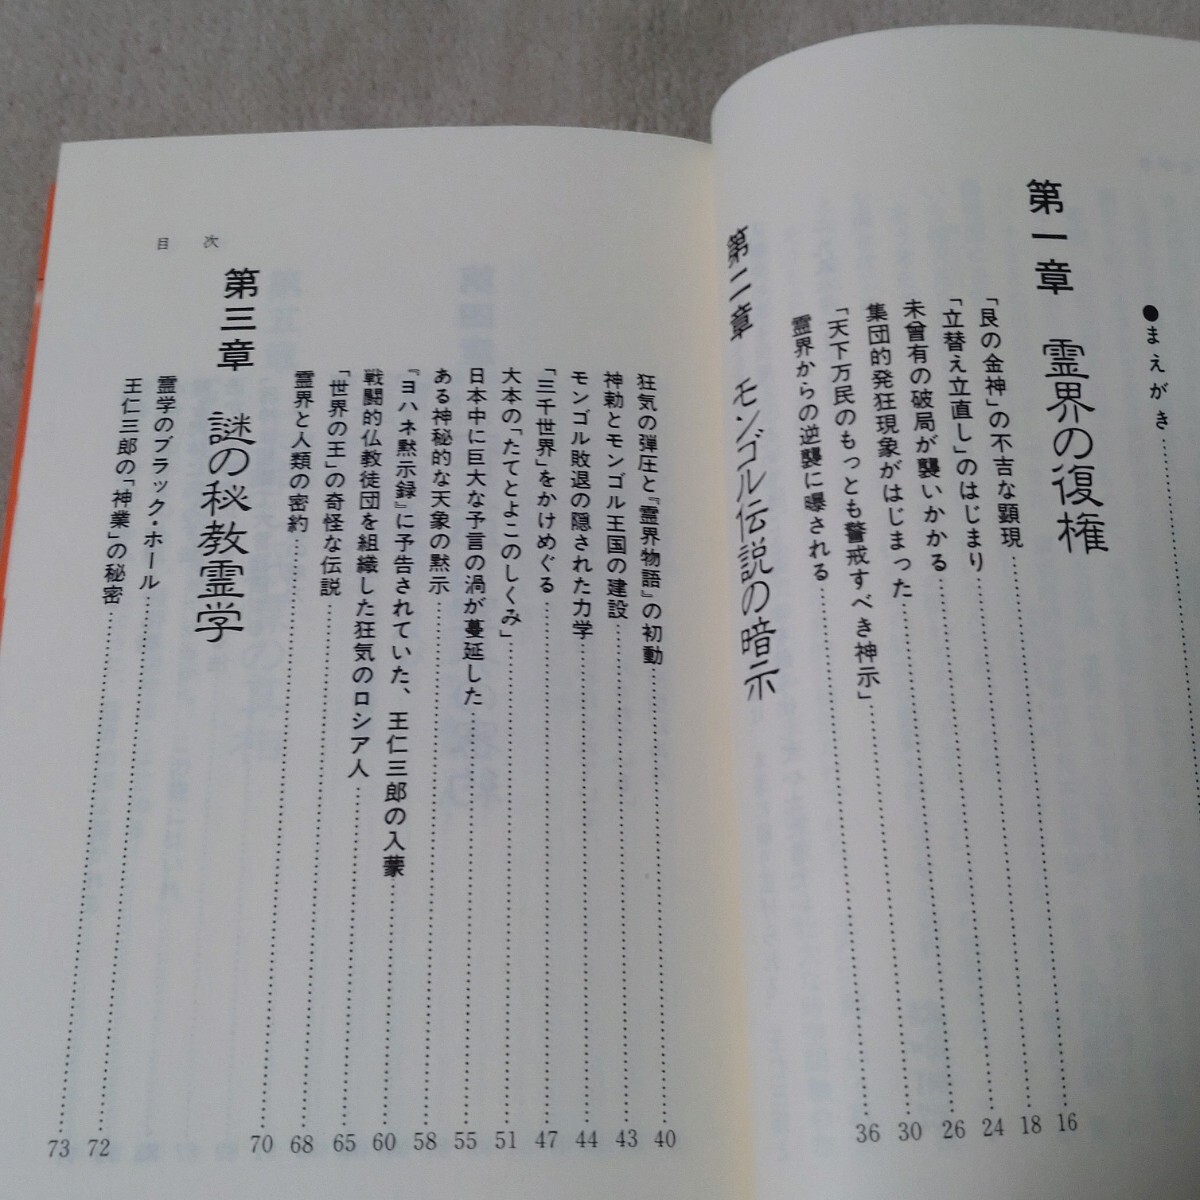 ●まえがき
第一章 霊界の復権
「艮の金神」の不吉な顕現 16
「立替え立直し」のはじまり 18
未曾有の破局が襲いかかる 24
集団的発狂現象がはじまった 26
「天下万民のもっとも警戒すべき神示」 30
霊界からの逆襲に曝される 36
第二章 モンゴル伝説の暗示
狂気の弾圧と『霊界物語』の初動 40
神勅とモンゴル王国の建設 43
モンゴル敗退の隠された力学 44
「三千世界」をかけめぐる 47
大本の「たてとよこのしくみ」 51
日本中に巨大な予言の渦が蔓延した 55
ある神秘的な天象の黙示 58
『ヨハネ黙示録』に予告されていた、王仁三郎の入蒙 60
戦闘的仏教徒団を組織した狂気のロシア人 65
「世界の王」の奇怪な伝説 68
霊界と人類の密約 70
第三章 謎の秘教霊学
霊学のブラック・ホール 72
王仁三郎の「神業」の秘密 73
目次